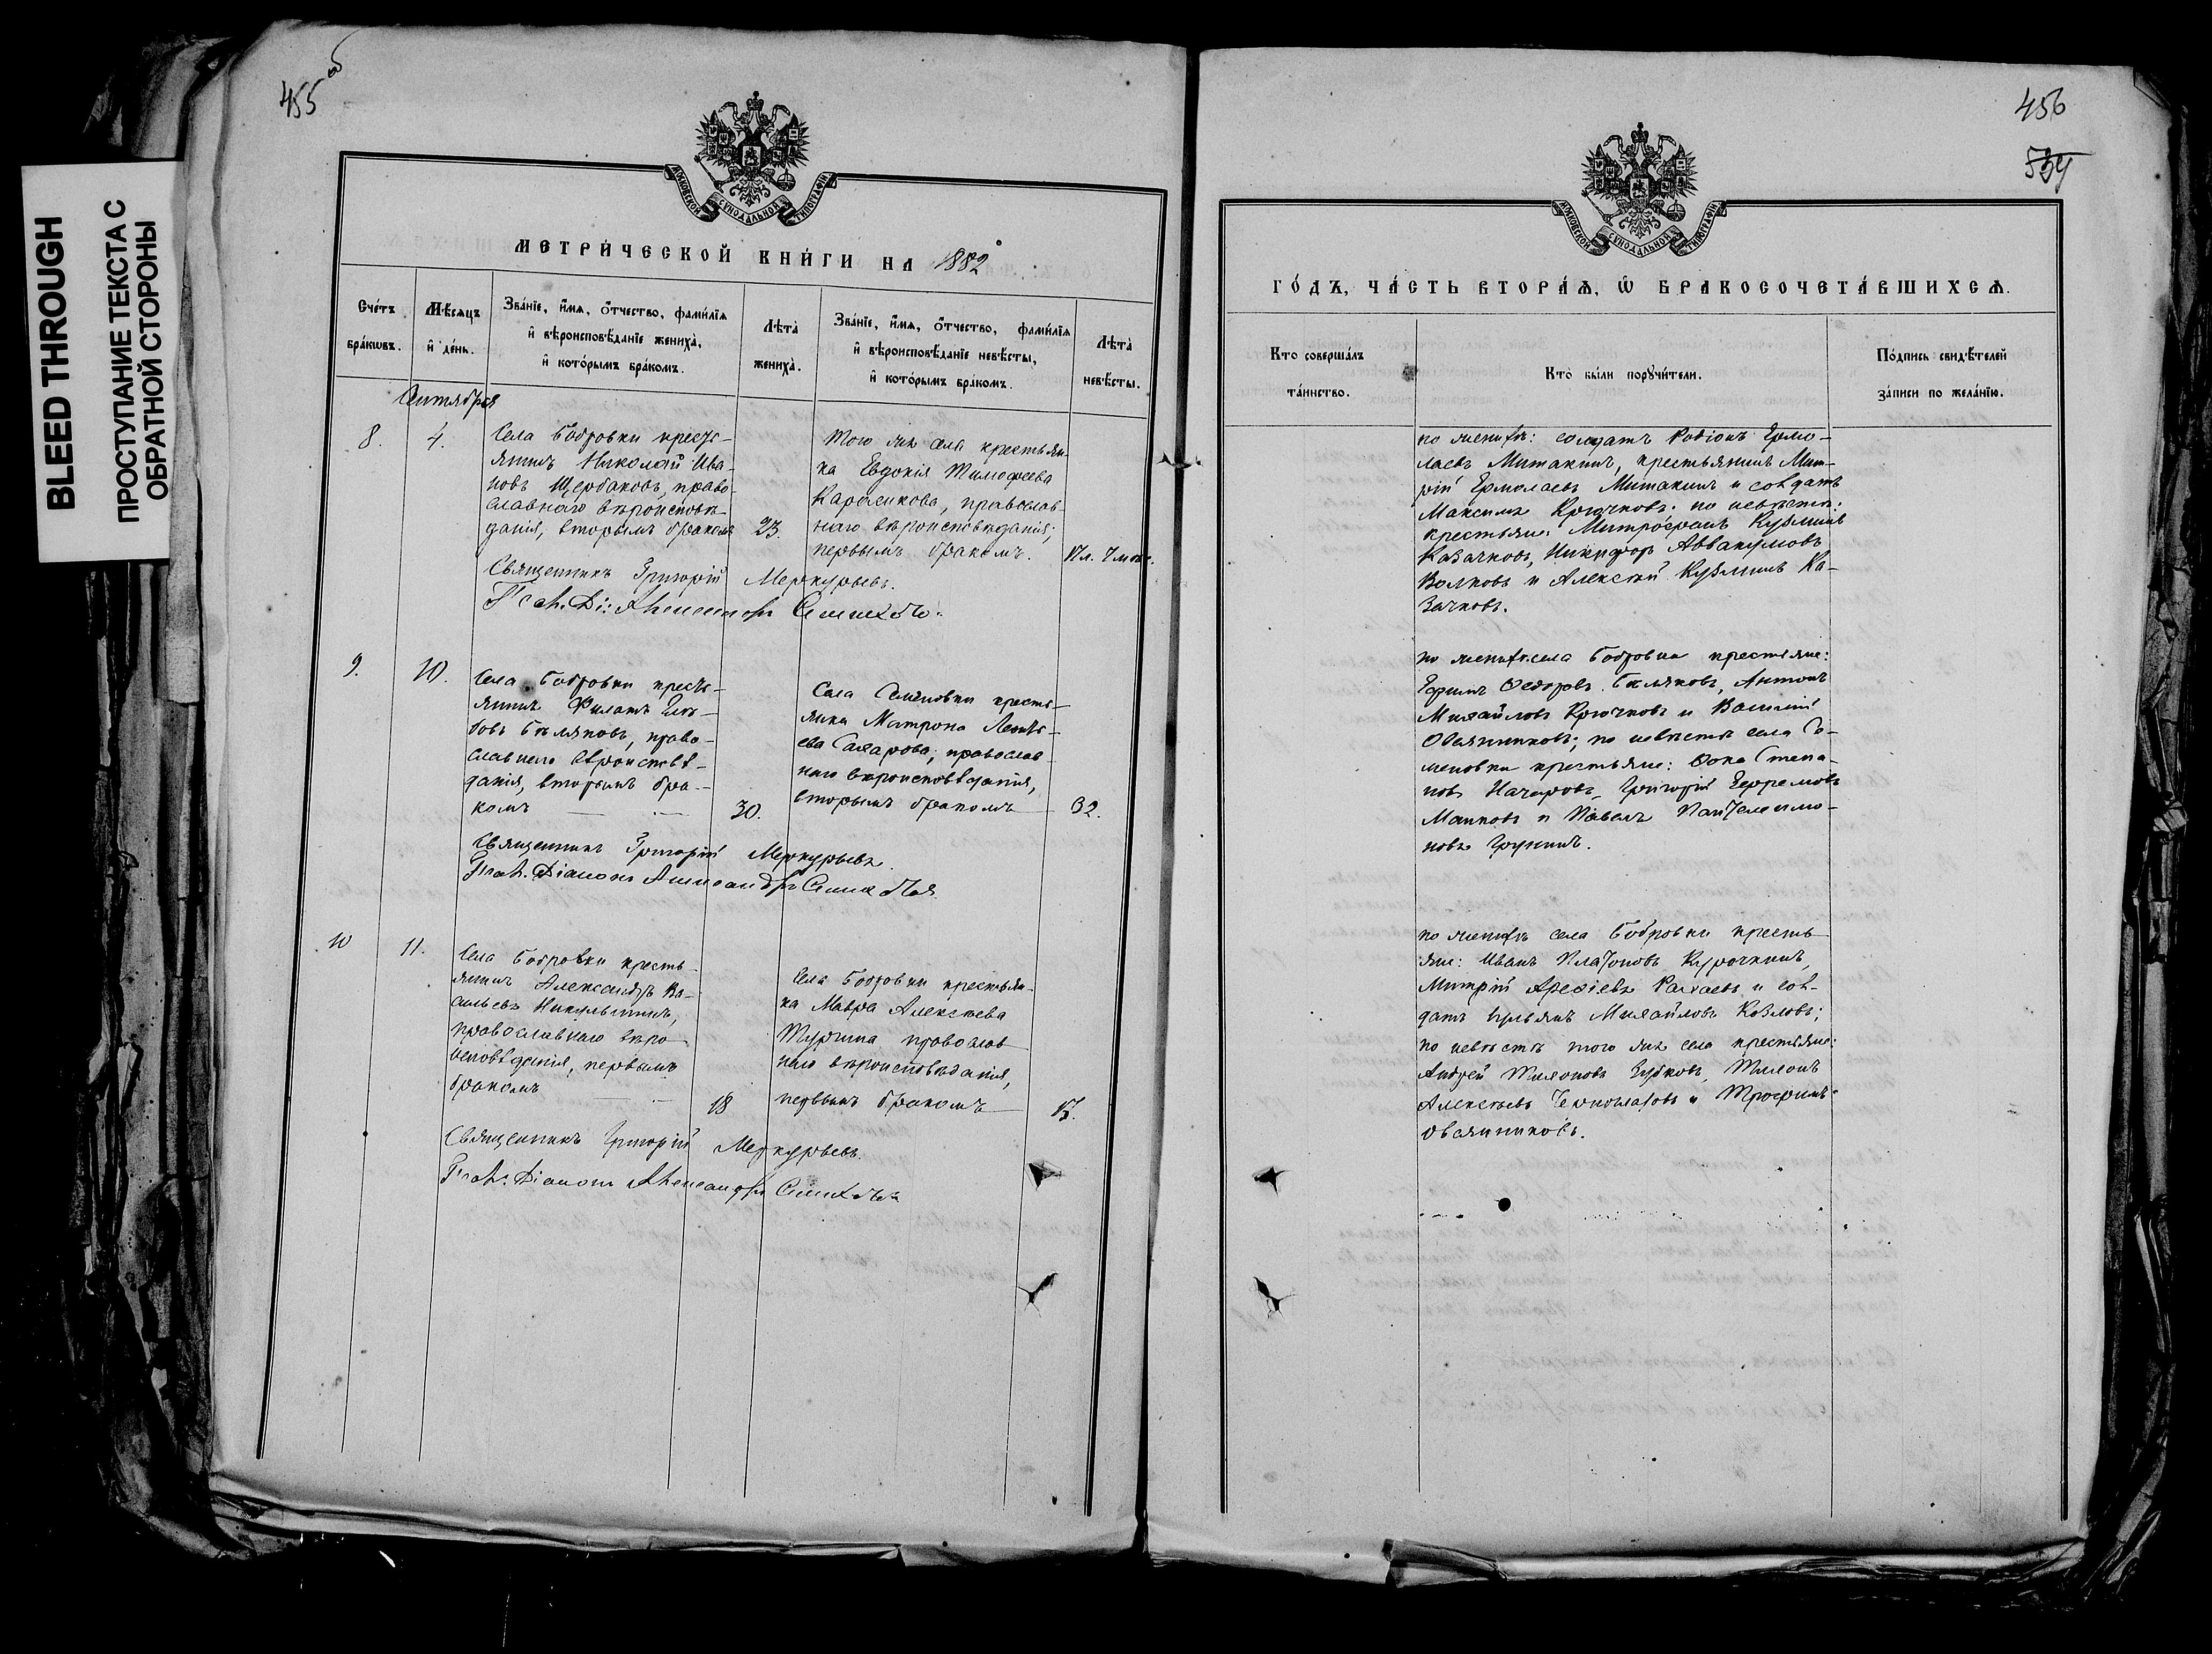 BLEED THROUGH
ПРОСТУПАНИЕ ТЕКСТА С
ОБРАТНОЙ СТОРОНЫ
455 об
МОСКОВСКОЙ СѴНОДАЛЬНОЙ ТИПОГРАФІИ
МЕТРИ́ЧЕСКОЙ КНИ́ГИ НА 1882
Сче́тъ бра́кωвъ.
Мѣ́сяцъ и҆ де́нь.
Зва́нїе, и҆́мѧ, ѻ҆́тчество, фами́лїѧ
и҆ вѣроисповѣ́данїе жениха̀,
и҆ кото́рымъ бра́комъ.
Лѣ́та жениха̀.
Зва́нїе, и҆́мѧ, ѻ҆́тчество, фами́лїѧ
и҆ вѣроисповѣ́данїе невѣ́сты,
и҆ кото́рымъ бра́комъ.
Лѣ́та невѣ́сты.
Сентября
8.
4.
Села Бобровки кресть-
янинъ Николай Ива-
новъ Щербаковъ, право-
славнаго вѣроисповѣ-
данія, вторымъ бракомъ
23.
Того же села крестьян-
ка Евдокія Тимофеева
православ-
наго вѣроисповѣданія,
первымъ бракомъ.
17 л. 7 мѣс.
Священникъ Григорій Меркурьевъ.
Псал. Ді:
9.
10.
Села Бобровки кресть-
янинъ Филатъ
Бѣляковъ, право-
славнаго вѣроисповѣ-
данія, вторымъ бра-
комъ
30.
Села Семеновки кресть-
янка Матрона Леонть-
ева Сахарова, православ-
наго вѣроисповѣданія,
вторымъ бракомъ
32.
Священникъ Григорій Меркурьевъ.
Псал. Діаконъ Александръ
10
11.
Села Бобровки кресть-
янинъ Александръ Ва-
сильевъ Никульшинъ,
православнаго вѣро-
исповѣданія, первымъ
бракомъ
18
Села Бобровки крестьян-
ка Мавра Алексѣева
Тургина православ-
наго вѣроисповѣданія,
первымъ бракомъ
17.
Священникъ Григорій Меркурьевъ.
Псал. Діаконъ Александръ
456
539
МОСКОВСКОЙ СѴНОДАЛЬНОЙ ТИПОГРАФІИ
ГО́ДЪ, ЧА́СТЬ ВТОРА́Ѧ, Ѡ҆ БРАКОСОЧЕТА́ВШИХСѦ.
Кто соверша́лъ
та́инство.
Кто̀ бы́ли порꙋчи́тели.
По́дпись свидѣ́телей
за́писи по жела́нїю.
по женихѣ: солдатъ Родіонъ Ермо-
лаевъ Митакинъ, крестьянинъ Мит-
рій Ермолаевъ Митакинъ и солдатъ
Максимъ Крючковъ; по невѣстѣ:
крестьяне: Митрофанъ Кузминъ
Казачковъ, Никифоръ Аввакумовъ
Волковъ и Алексѣй Кузминъ Ка-
зачковъ.
по женихѣ села Бобровки крестьяне:
Ефимъ Ѳедоровъ Бѣляковъ, Антонъ
Михайловъ Крючковъ и Василій
Овсянниковъ; по невѣстѣ села Се-
меновки крестьяне: Ѳока Степа-
новъ Григорій Ефремовъ
и Павелъ Пантелеимо-
новъ
по женихѣ села Бобровки кресть-
яне: Иванъ Платоновъ Курочкинъ,
Митрій Арефіевъ и сол-
датъ Ульянъ Михайловъ Козловъ;
по невѣстѣ того же села крестьяне:
Андрей Тихоновъ Зубковъ, Тихонъ
Алексѣевъ и Трофимъ
Овсянниковъ.